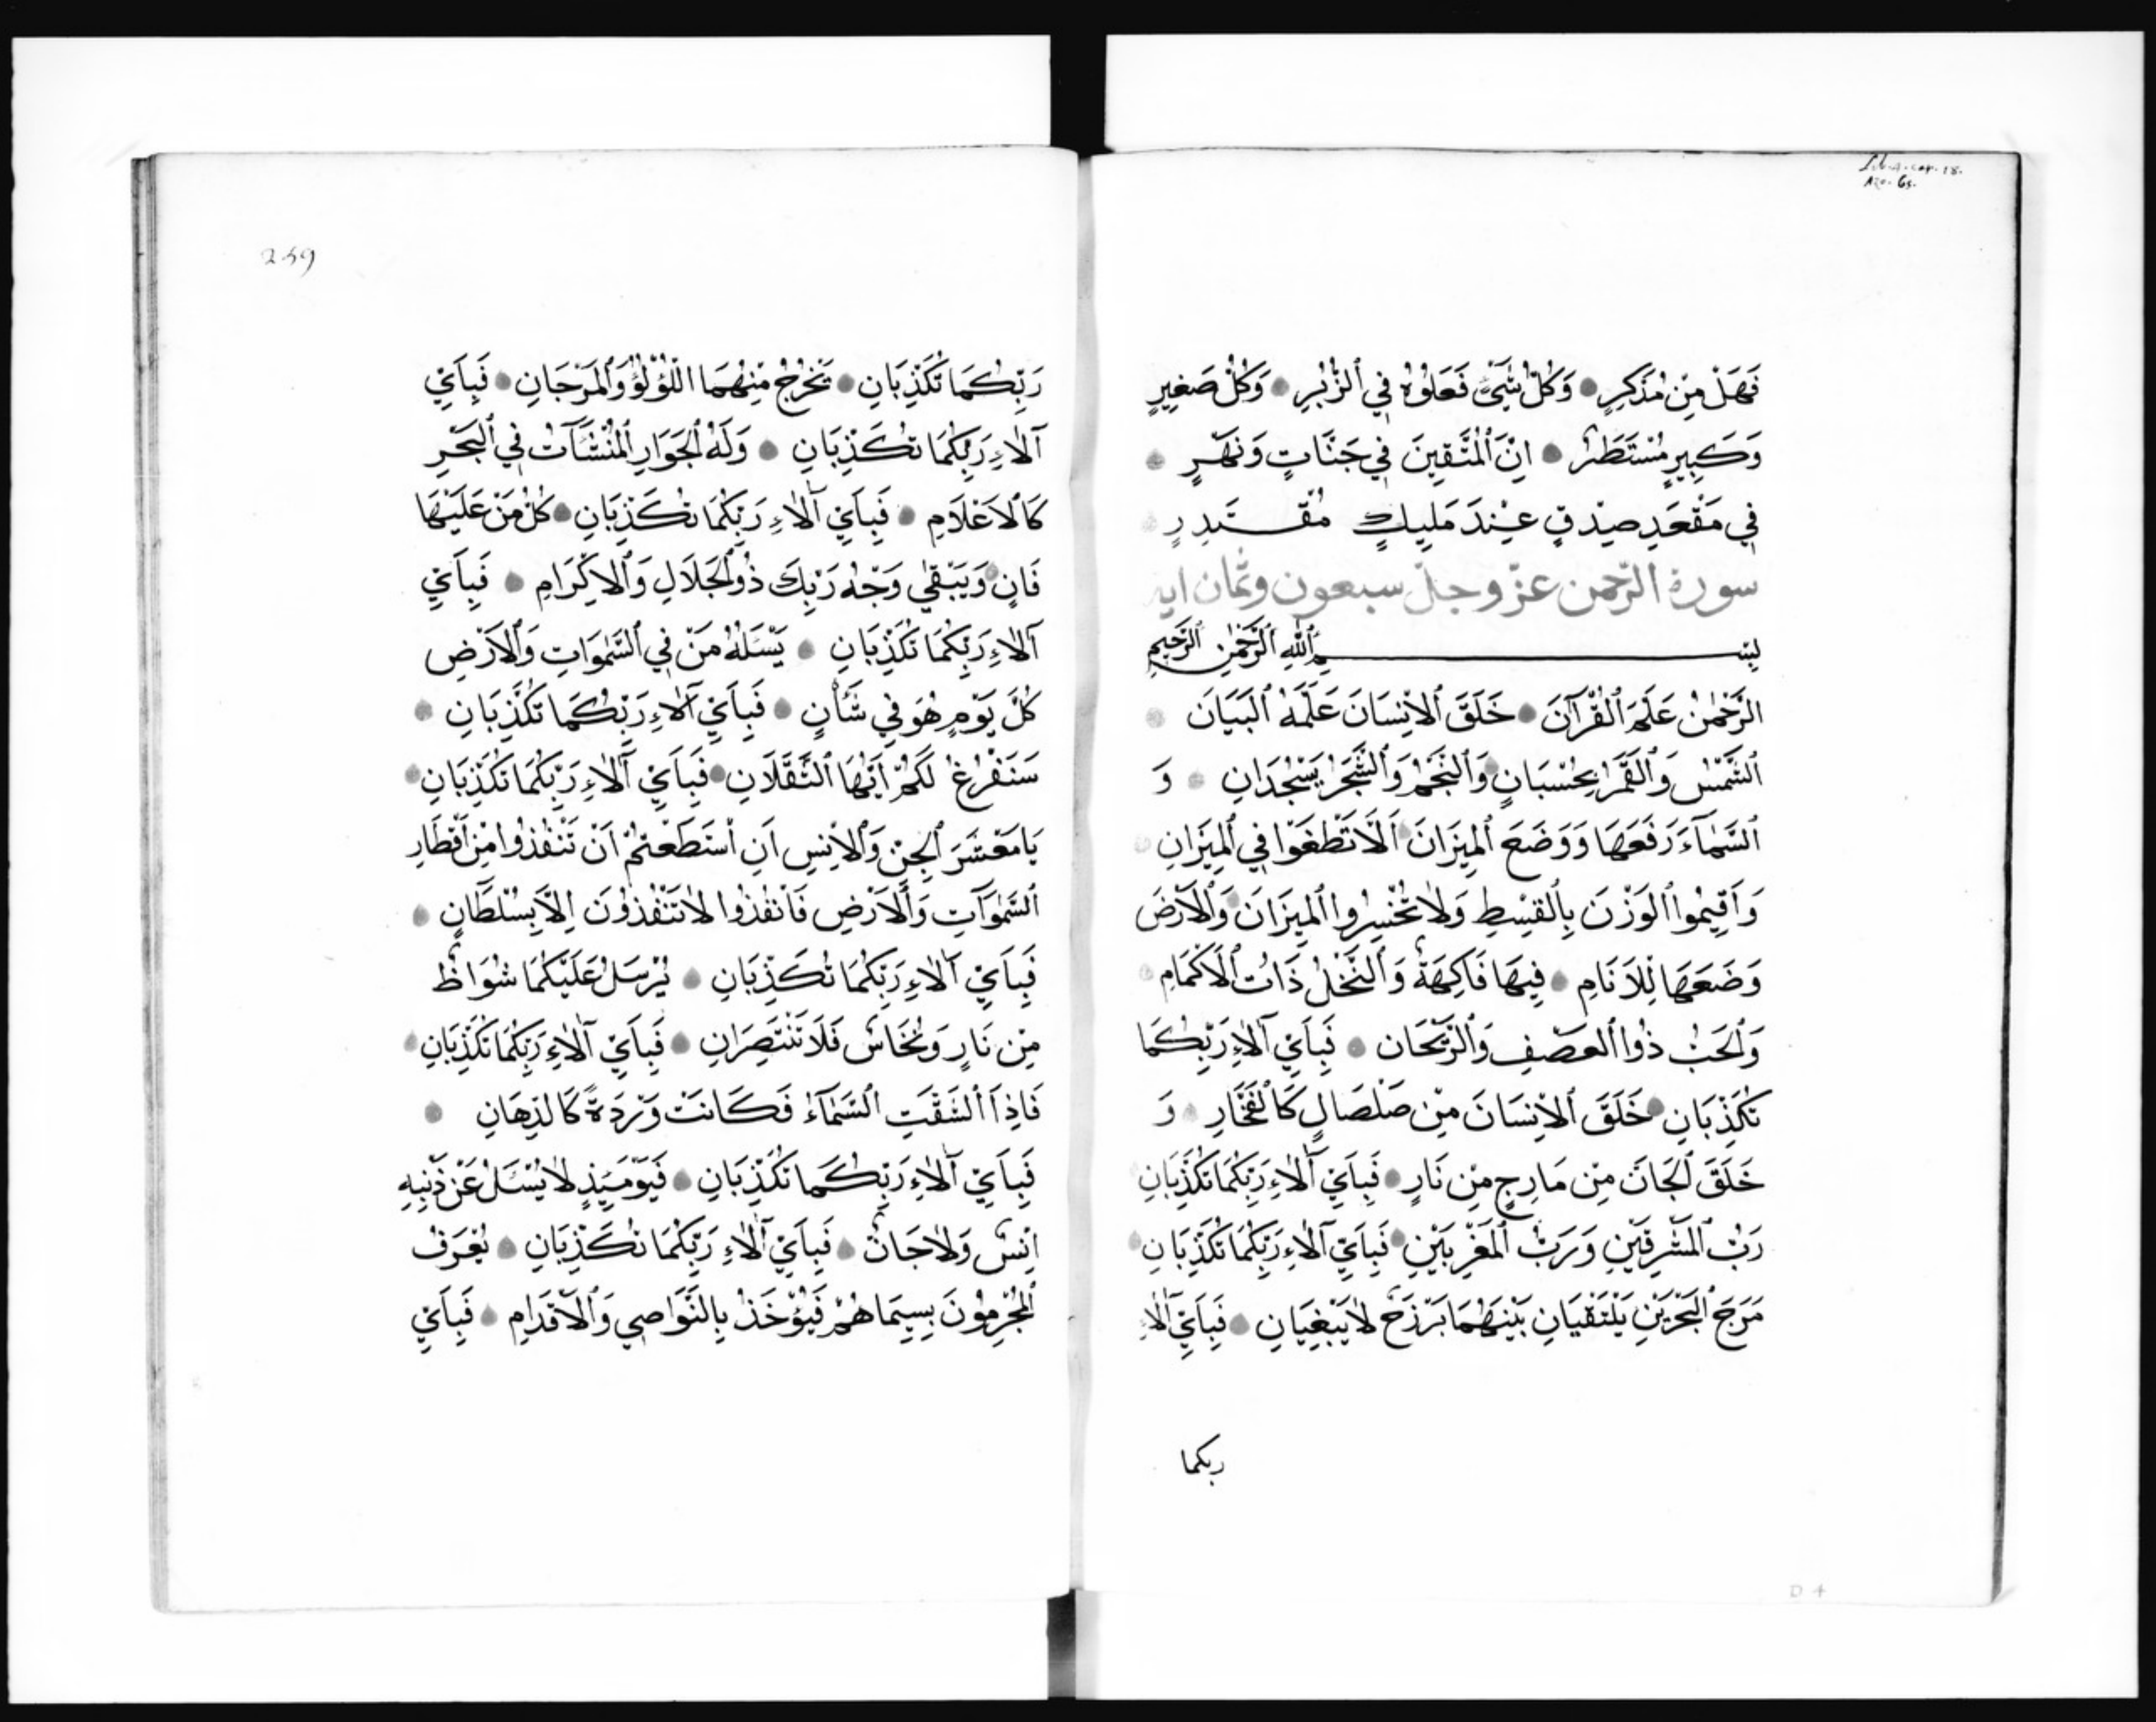 Lib. 4. cap. 18.
Azo. 65.
فَهَلْ مِنْ مُدَّكِرٍ وَكُلُّ شَيْءٍ فَعَلُوهُ فِي ٱلزُّبُرِ وَكُلُّ صَغِيرٍ
وَكَبِيرٍ مُسْتَطَرٌ اِنَّ ٱلْمُتَّقِينَ فِي جَنَّاتٍ وَنَهَرٍ
فِي مَقْعَدِ صِدْقٍ عِنْدَ مَلِيكٍ مُقْتَدِرٍ
سورة الرّحمن عزّ وجلّ سبعون وثمان اية
بِسْمِ ٱللّٰهِ ٱلرَّحْمٰنِ ٱلرَّحِيمِ
اَلرَّحْمٰنُ عَلَّمَ ٱلْقُرْآنَ خَلَقَ ٱلْاِنْسَانَ عَلَّمَهُ ٱلْبَيَانَ
ٱلشَّمْسُ وَٱلْقَمَرُ بِحُسْبَانٍ وَٱلنَّجْمُ وَٱلشَّجَرُ يَسْجُدَانِ وَ
ٱلسَّمَآءَ رَفَعَهَا وَوَضَعَ ٱلْمِيزَانَ اَلَّا تَطْغَوْا فِي ٱلْمِيزَانِ
وَاَقِيمُوا ٱلْوَزْنَ بِٱلْقِسْطِ وَلَا تُخْسِرُوا ٱلْمِيزَانَ وَٱلْاَرْضَ
وَضَعَهَا لِلْاَنَامِ فِيهَا فَاكِهَةٌ وَٱلنَّخْلُ ذَاتُ ٱلْاَكْمَامِ
وَٱلْحَبُّ ذُوا ٱلْعَصْفِ وَٱلرَّيْحَان فَبِاَيِّ آلَاءِ رَبِّكُمَا
تُكَذِّبَانِ خَلَقَ ٱلْاِنْسَانَ مِنْ صَلْصَالٍ كَالْفَخَّارِ وَ
خَلَقَ ٱلْجَانَّ مِنْ مَارِجٍ مِنْ نَارٍ فَبِاَيِّ آلَاءِ رَبِّكُمَا تُكَذِّبَانِ
رَبُّ ٱلْمَشْرِقَيْنِ وَرَبُّ ٱلْمَغْرِبَيْنِ فَبِاَيِّ آلَاءِ رَبِّكُمَا تُكَذِّبَانِ
مَرَجَ ٱلْبَحْرَيْنِ يَلْتَقِيَانِ بَيْنَهُمَا بَرْزَخٌ لَا يَبْغِيَانِ فَبِاَيِّ آلَاءِ
ربكما
D 4
249
رَبِّكُمَا تُكَذِّبَانِ يَخْرُجُ مِنْهُمَا اللُّؤْلُؤُ وَٱلْمَرْجَانِ فَبِاَيِّ
آلَاءِ رَبِّكُمَا تُكَذِّبَانِ وَلَهُ ٱلْجَوَارِ ٱلْمُنْشَآتُ فِي ٱلْبَحْرِ
كَٱلْاَعْلَامِ فَبِاَيِّ آلَاءِ رَبِّكُمَا تُكَذِّبَانِ كُلُّ مَنْ عَلَيْهَا
فَانٍ وَيَبْقٰى وَجْهُ رَبِّكَ ذُو ٱلْجَلَالِ وَٱلْاِكْرَامِ فَبِاَيِّ
آلَاءِ رَبِّكُمَا تُكَذِّبَانِ يَسْـَٔلُهُ مَنْ فِي ٱلسَّمٰوَاتِ وَٱلْاَرْضِ
كُلَّ يَوْمٍ هُوَ فِي شَأْنٍ فَبِاَيِّ آلَاءِ رَبِّكُمَا تُكَذِّبَانِ
سَنَفْرُغُ لَكُمْ اَيُّهَا ٱلثَّقَلَانِ فَبِاَيِّ آلَاءِ رَبِّكُمَا تُكَذِّبَانِ
يَا مَعْشَرَ ٱلْجِنِّ وَٱلْاِنْسِ اَنِ ٱسْتَطَعْتُمْ اَنْ تَنْفُذُوا مِنْ اَقْطَارِ
ٱلسَّمٰوَاتِ وَٱلْاَرْضِ فَٱنْفُذُوا لَا تَنْفُذُونَ اِلَّا بِسُلْطَانٍ
فَبِاَيِّ آلَاءِ رَبِّكُمَا تُكَذِّبَانِ يُرْسَلُ عَلَيْكُمَا شُوَاظٌ
مِنْ نَارٍ وَنُحَاسٌ فَلَا تَنْتَصِرَانِ فَبِاَيِّ آلَاءِ رَبِّكُمَا تُكَذِّبَانِ
فَاِذَا ٱنْشَقَّتِ ٱلسَّمَآءُ فَكَانَتْ وَرْدَةً كَالدِّهَانِ
فَبِاَيِّ آلَاءِ رَبِّكُمَا تُكَذِّبَانِ فَيَوْمَئِذٍ لَا يُسْـَٔلُ عَنْ ذَنْبِهِ
اِنْسٌ وَلَا جَانٌّ فَبِاَيِّ آلَاءِ رَبِّكُمَا تُكَذِّبَانِ يُعْرَفُ
ٱلْمُجْرِمُونَ بِسِيمَاهُمْ فَيُؤْخَذُ بِالنَّوَاصِي وَٱلْاَقْدَامِ فَبِاَيِّ